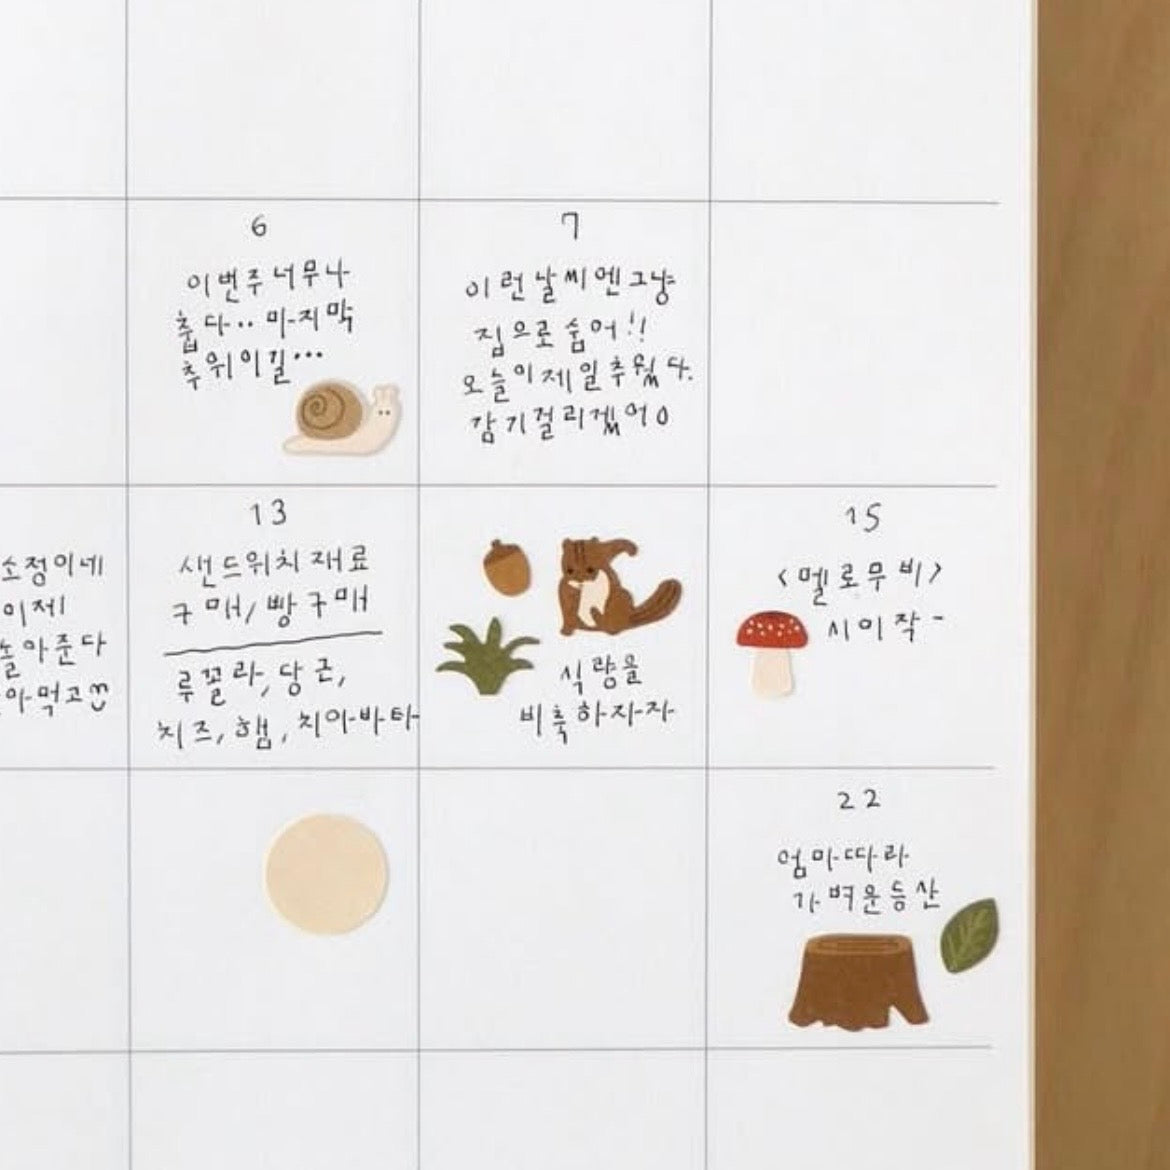 6
이번주 너무나
춥다… 마지막
추위이길…
7
이런 날씨엔 그냥
집으로 숨어!!
오늘이 제일 추웠다.
감기걸리겠어ㅇ
소정이네
이제
놀아준다
아먹고
13
샌드위치 재료
구매/빵구매
루꼴라, 당근,
치즈, 햄, 치아바타
식량을
비축하자자
15
<멜로무비>
시이작-
22
엄마따라
가벼운등산